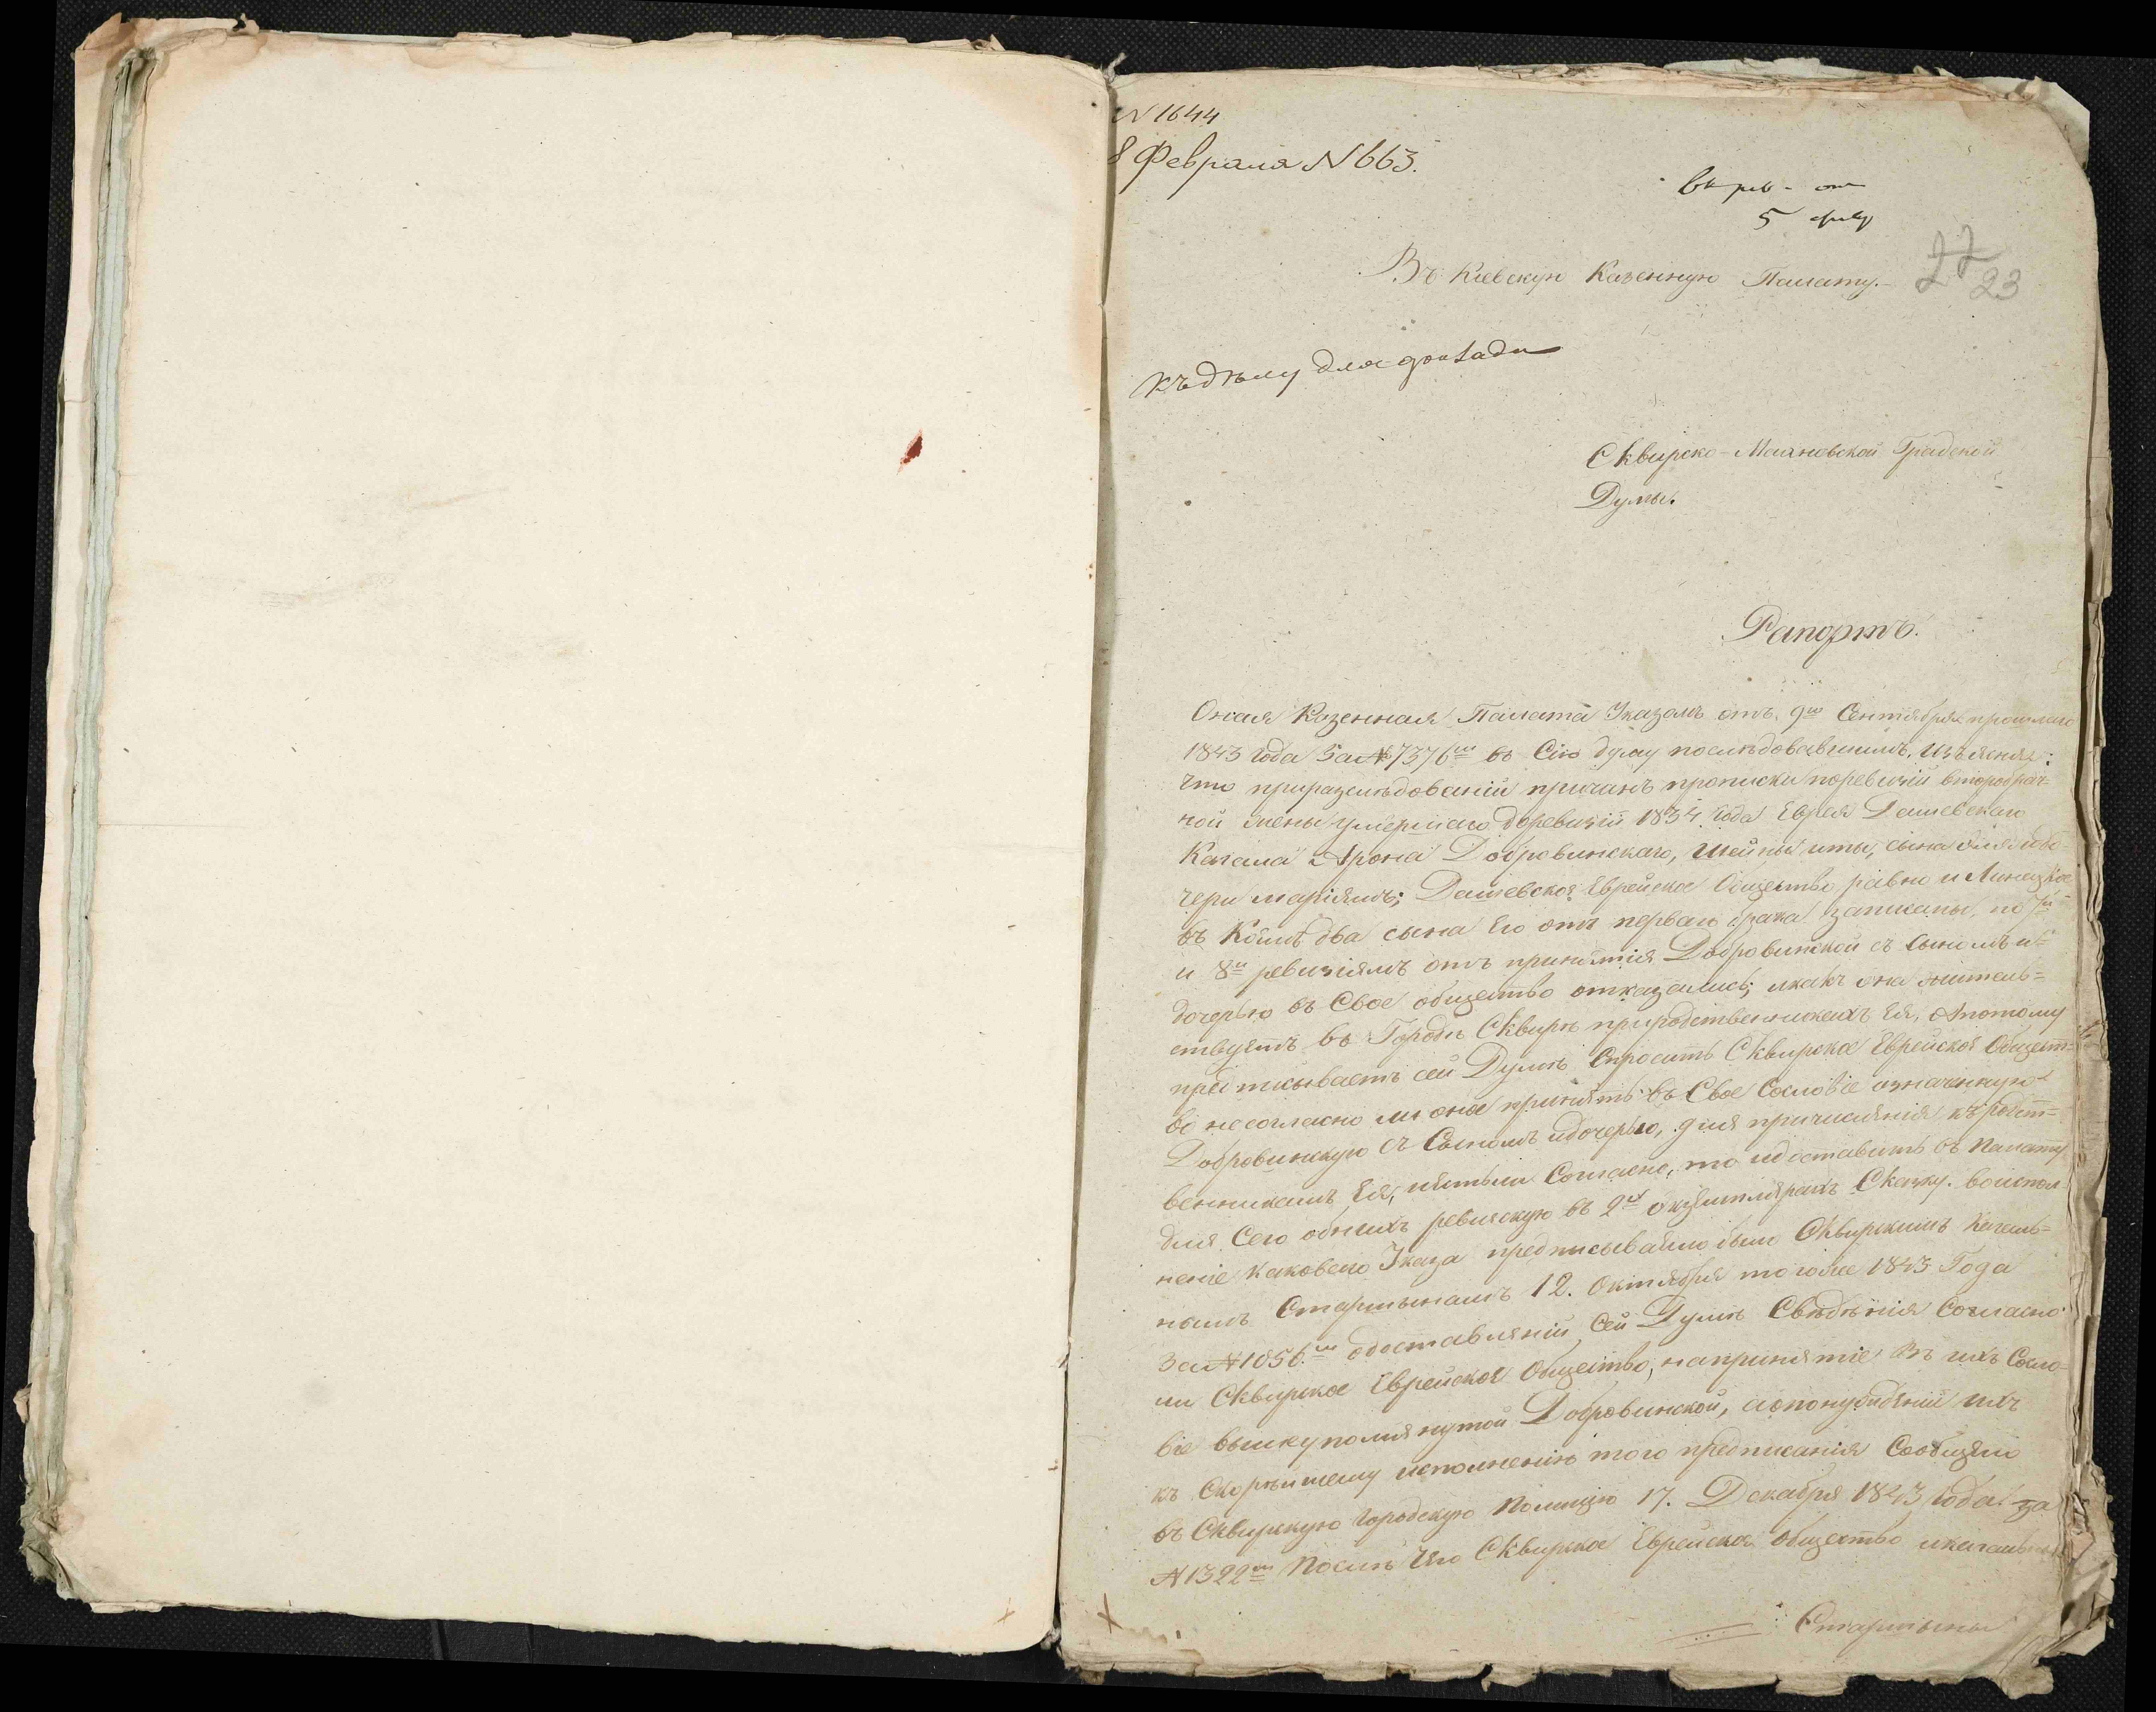 N 1644
8 Февраля N 663.
5 февр
27 23
Въ Кіевскую Казенную Палату.
Къ дѣлу для доклада
Сквирско-Махновской Градской
Думы.
Рапортъ.
Оная Казенная Палата Указомъ отъ 9го Сентября прошлаго
1843 года за № 7376м въ Сію думу послѣдовавшимъ, изъясняя:
что приразслѣдованіи причинъ прописки поревизіи второбрач-
ной жены умершаго доревизіи 1834 года Еврея Дашевскаго
Кагала Арона Добровинскаго, Шейны иты, сына идо-
чери маріямъ; Дашевское Еврейское Общество равно и Линецкое
въ Коемъ два сына Его отъ перваго брака записаны, по 7й
и 8й ревизіямъ отъ принятія Добровинской съ Сыномъ и
дочерью въ Свое общество отказались; икакъ она житель-
ствуетъ въ Городѣ Сквирѣ природственникахъ Ея, Апотому
предписываетъ сей Думѣ Спросить Сквирское Еврейское Общест-
во несогласно ли оное принять въ Свое Сословіе означенную
Добровинскую съ Сыномъ идочерью, для причисленія къродст-
венникамъ Ея, иестьли Согласно, то идоставить въ Палату
для Сего обнихъ ревизскую въ 2хъ экземплярахъ Сказку. Воиспол-
неніе каковаго Указа предписываемо было Сквирскимъ Кагаль-
нымъ Старшинамъ 12. Октября тогоже 1843 Года
За № 1056.м одоставленіи Сей Думѣ Свѣдѣнія Согласно
ли Сквирское Еврейское Общество, напринятіе Въ ихъ Сосло-
віе вышеупомянутой Добровинской, иопонужденіи ихъ
къ Скорѣйшему исполненію того предписанія Сообщено
въ Сквирскую Городскую Полицію 17. Декабря 1843 года за
№ 1322м Послѣ чего Сквирское Еврейское общество икагальные
Старшины